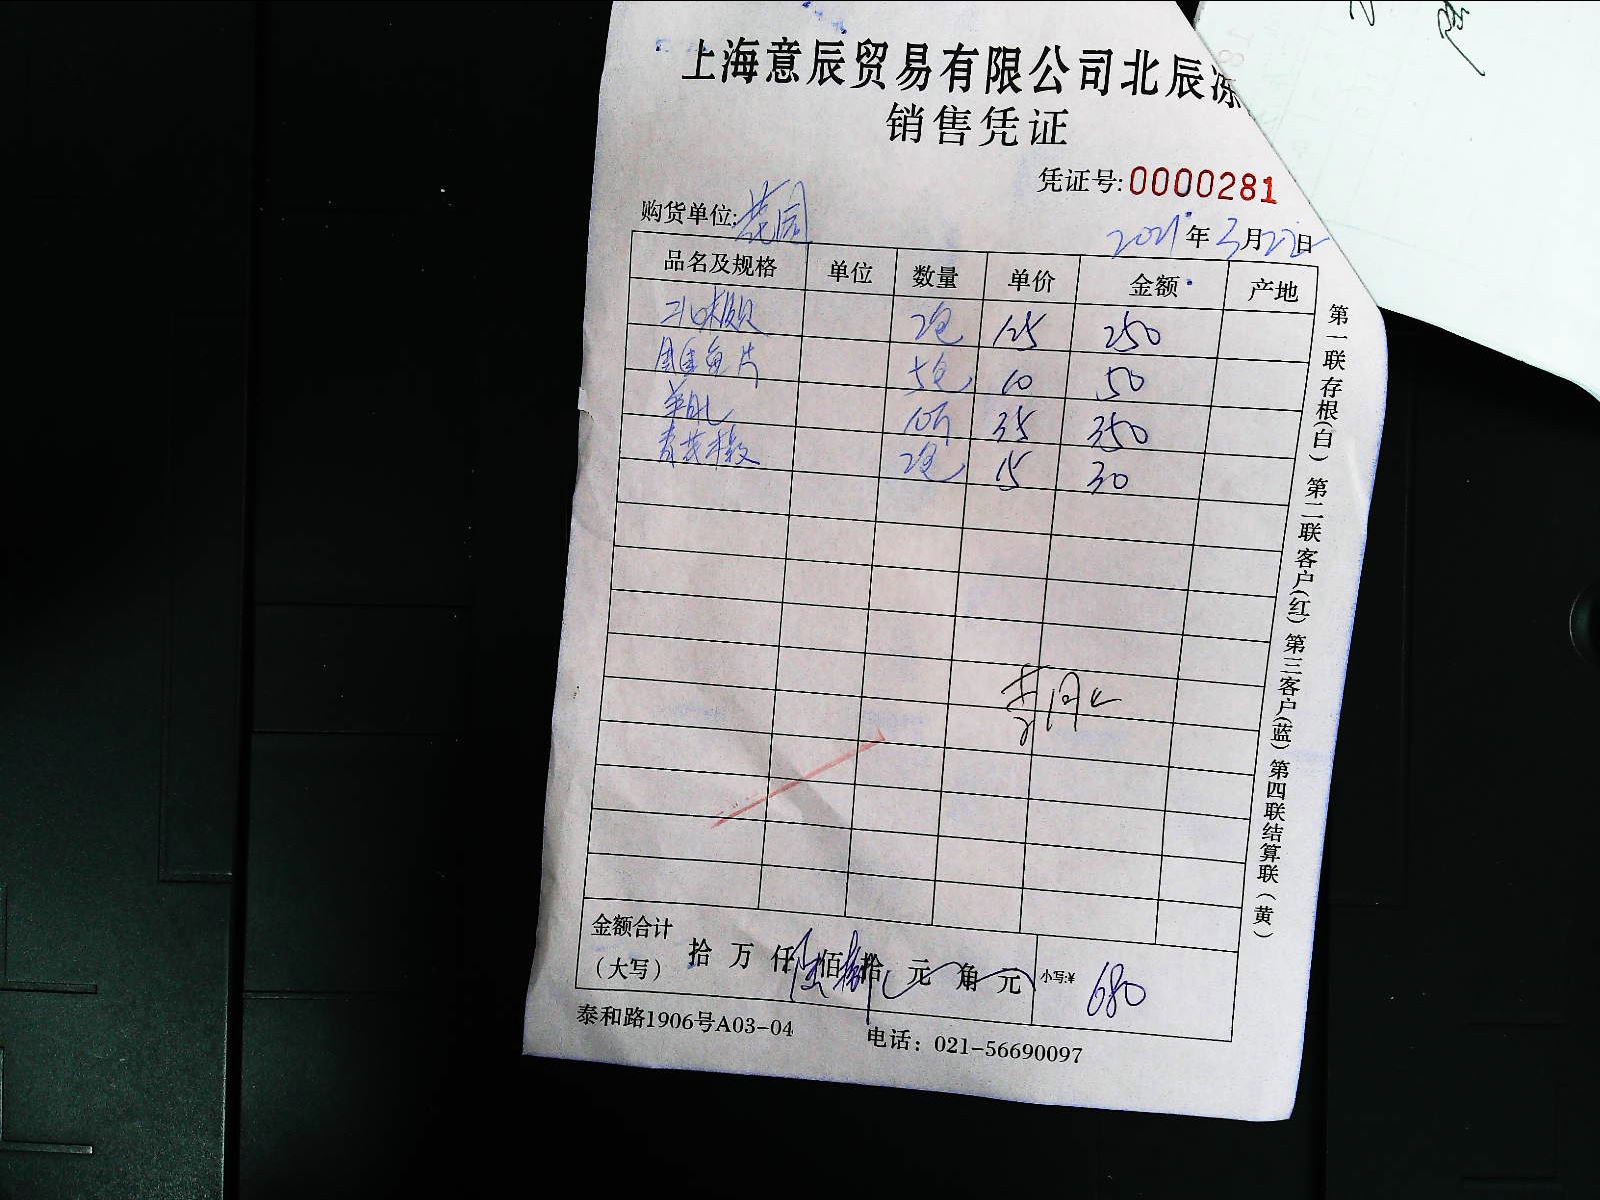 上海意辰贸易有限公司北辰冻
销售凭证
凭证号:0000281
购货单位:花园
2021年3月27日
品名及规格 单位 数量 单价 金额 产地
2包 125 250
鱼片 5包 10 50
10斤 35 350
2包 15 30
金额合计
(大写) 拾 万 仟陆佰捌拾 元 角 元 小写:¥ 680
泰和路1906号A03-04 电话: 021-56690097
第一联存根(白) 第二联客户(红) 第三客户(蓝) 第四联结算联(黄)